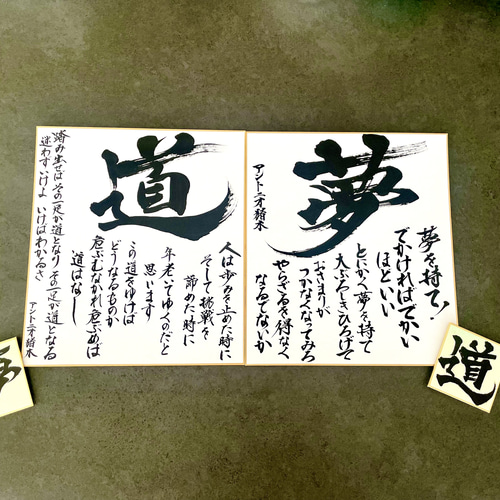 夢
夢を持て!
でかければでかい
ほどいい
とにかく夢を持て
大ぶろしきひろげて
おさまりが
つかなくなってみろ
やらざるを得なく
なるでないか
アントニオ猪木
道
人は歩みを止めた時に
そして挑戦を
諦めた時に
年老いてゆくのだと
思います
この道をゆけば
どうなるものか
危ぶむなかれ危ぶめば
道はなし
踏み出せばその一足が道となりその一足が道となる
迷わずいけよ いけばわかるさ
アントニオ猪木
道